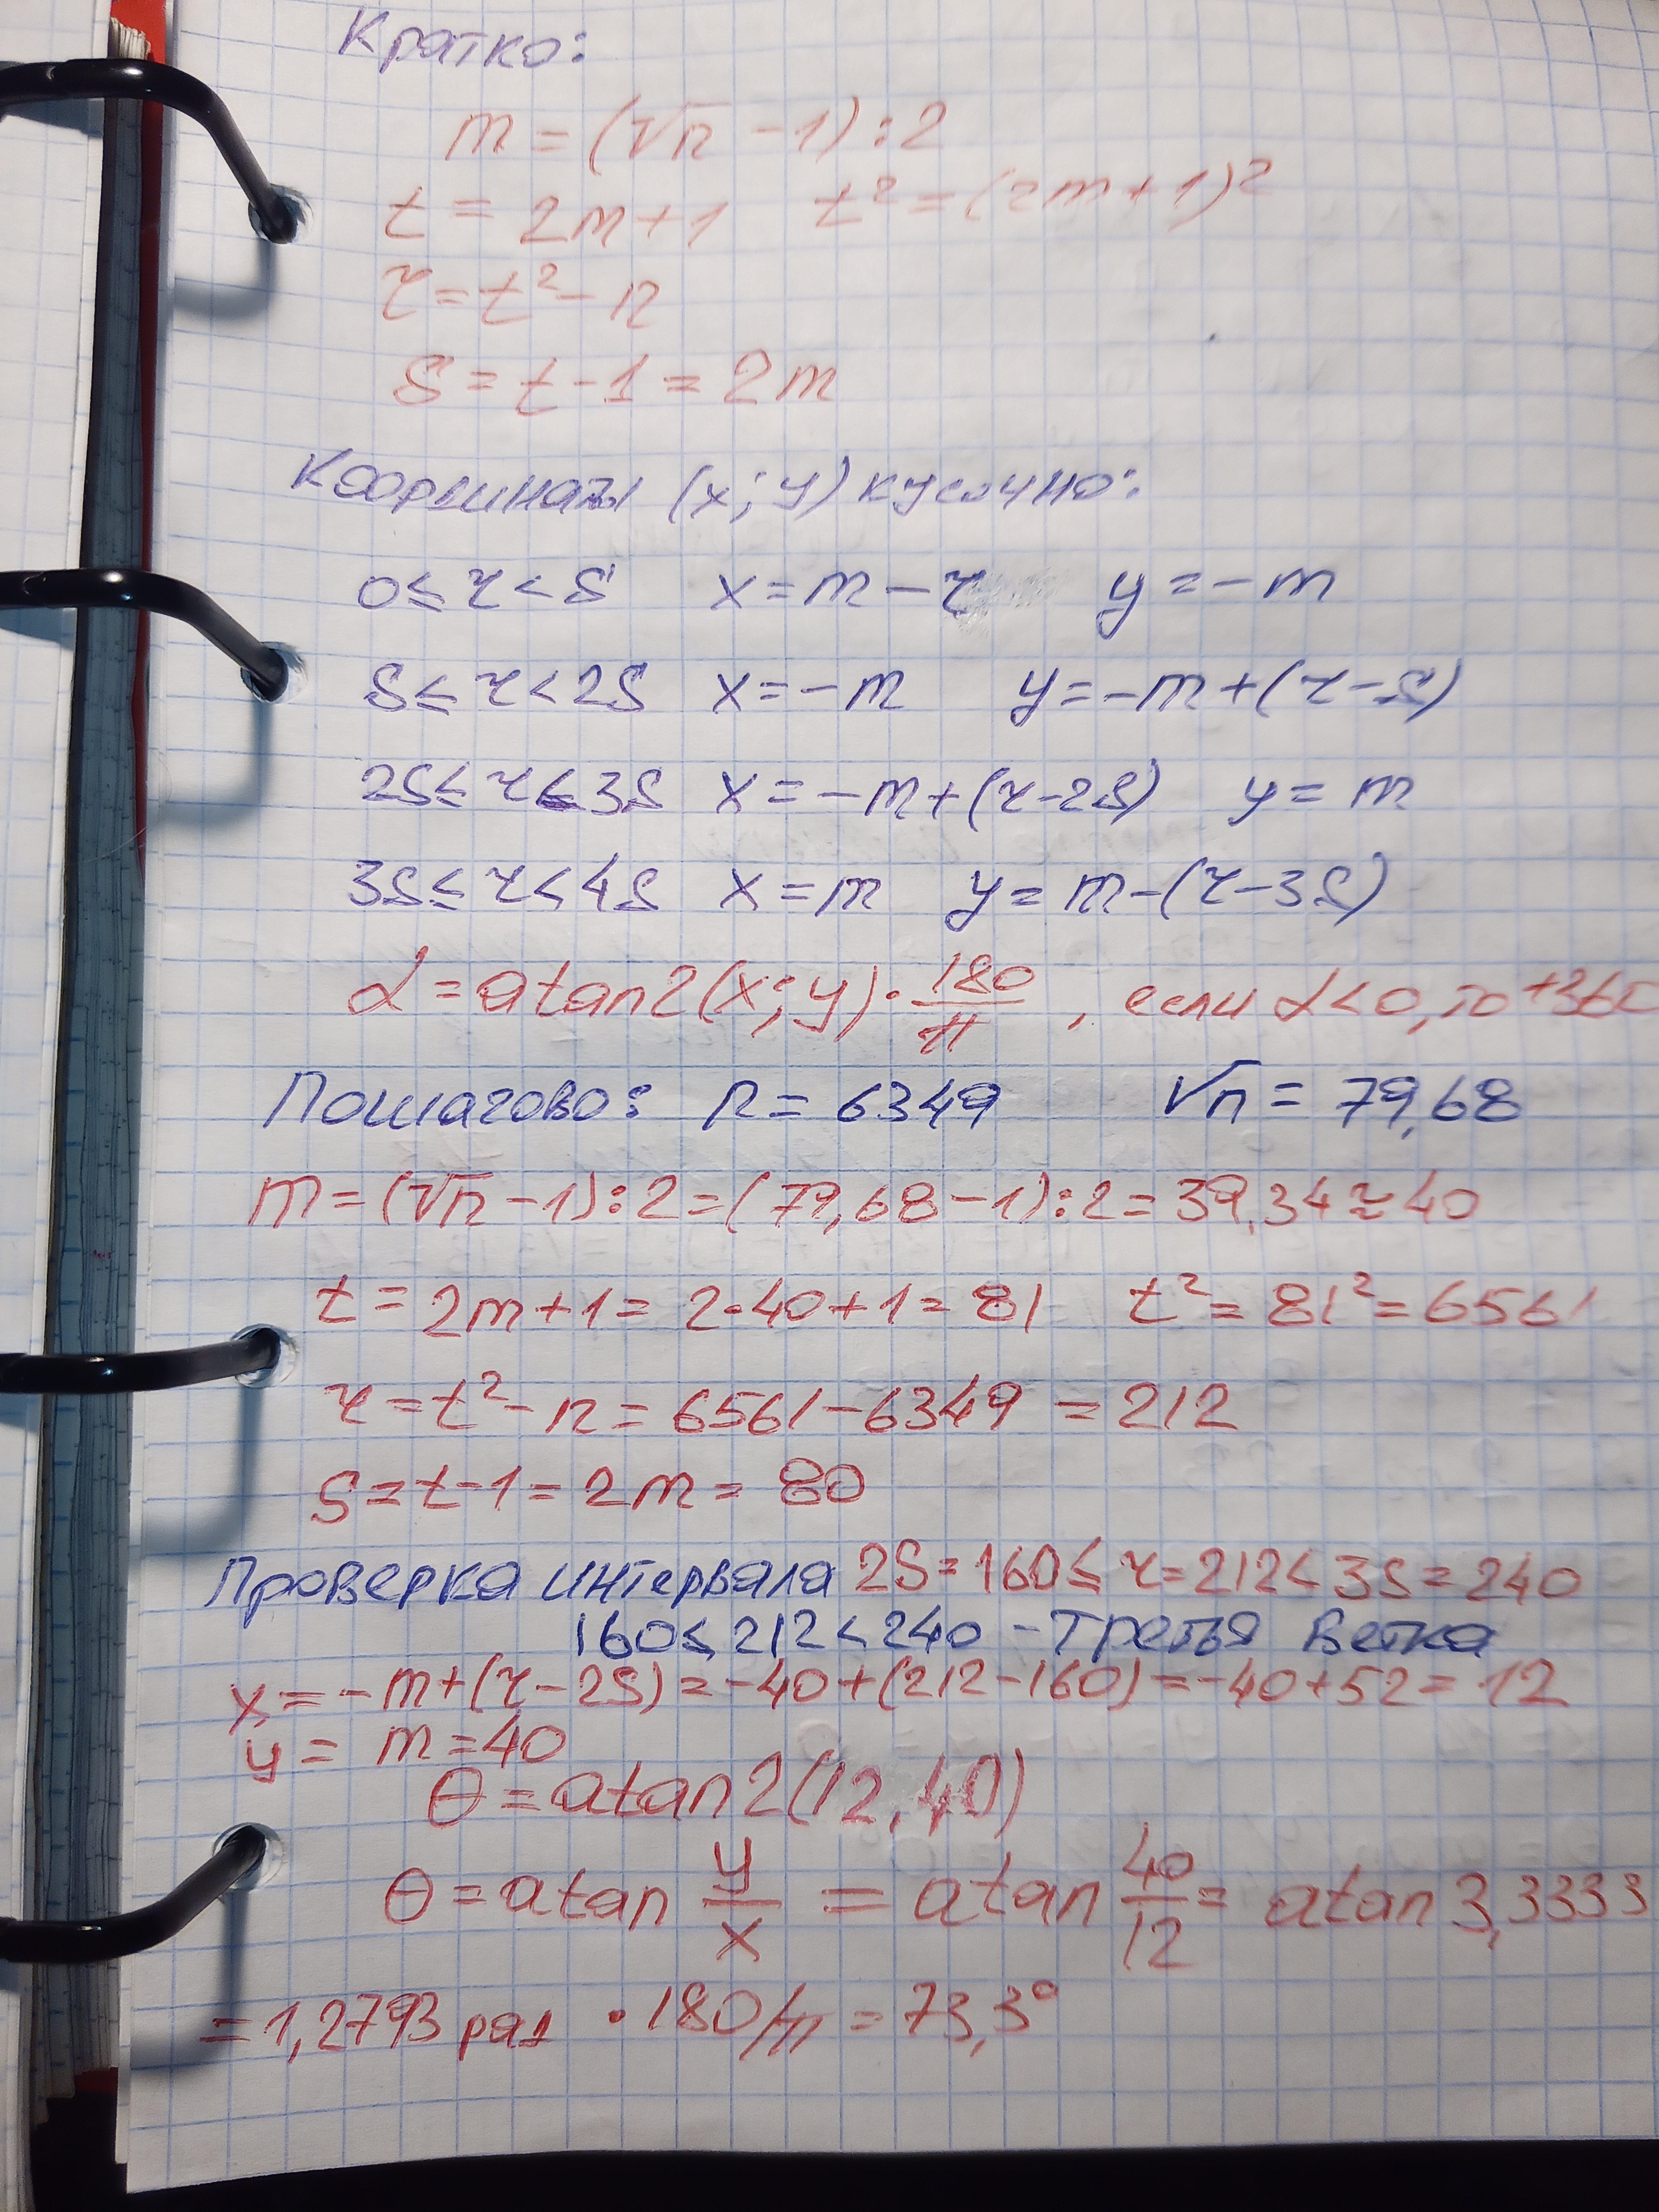 Кратко:
m = (√n - 1) : 2
t = 2m + 1   t² = (2m + 1)²
r = t² - n
S = t - 1 = 2m
Координаты (x; y) кусочно:
0 ≤ r < S   x = m - r   y = - m
S ≤ r < 2S   x = - m   y = - m + (r - S)
2S ≤ r ≤ 3S   x = - m + (r - 2S)   y = m
3S ≤ r < 4S   x = m   y = m - (r - 3S)
α = atan2(x; y) · 180/π , если α < 0, то +360
Пошагово: n = 6349   √n = 79,68
m = (√n - 1) : 2 = (79,68 - 1) : 2 = 39,34 ≈ 40
t = 2m + 1 = 2 · 40 + 1 = 81   t² = 81² = 6561
r = t² - n = 6561 - 6349 = 212
S = t - 1 = 2m = 80
Проверка интервала 2S = 160 ≤ r = 212 < 3S = 240
160 ≤ 212 < 240 - третья ветка
x = - m + (r - 2S) = - 40 + (212 - 160) = - 40 + 52 = 12
y = m = 40
θ = atan2(12, 40)
θ = atan y/x = atan 40/12 = atan 3,3333
= 1,2793 рад · 180/π = 73,3°